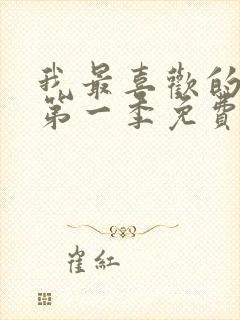 我最喜歡的
第一季免費
崔紅